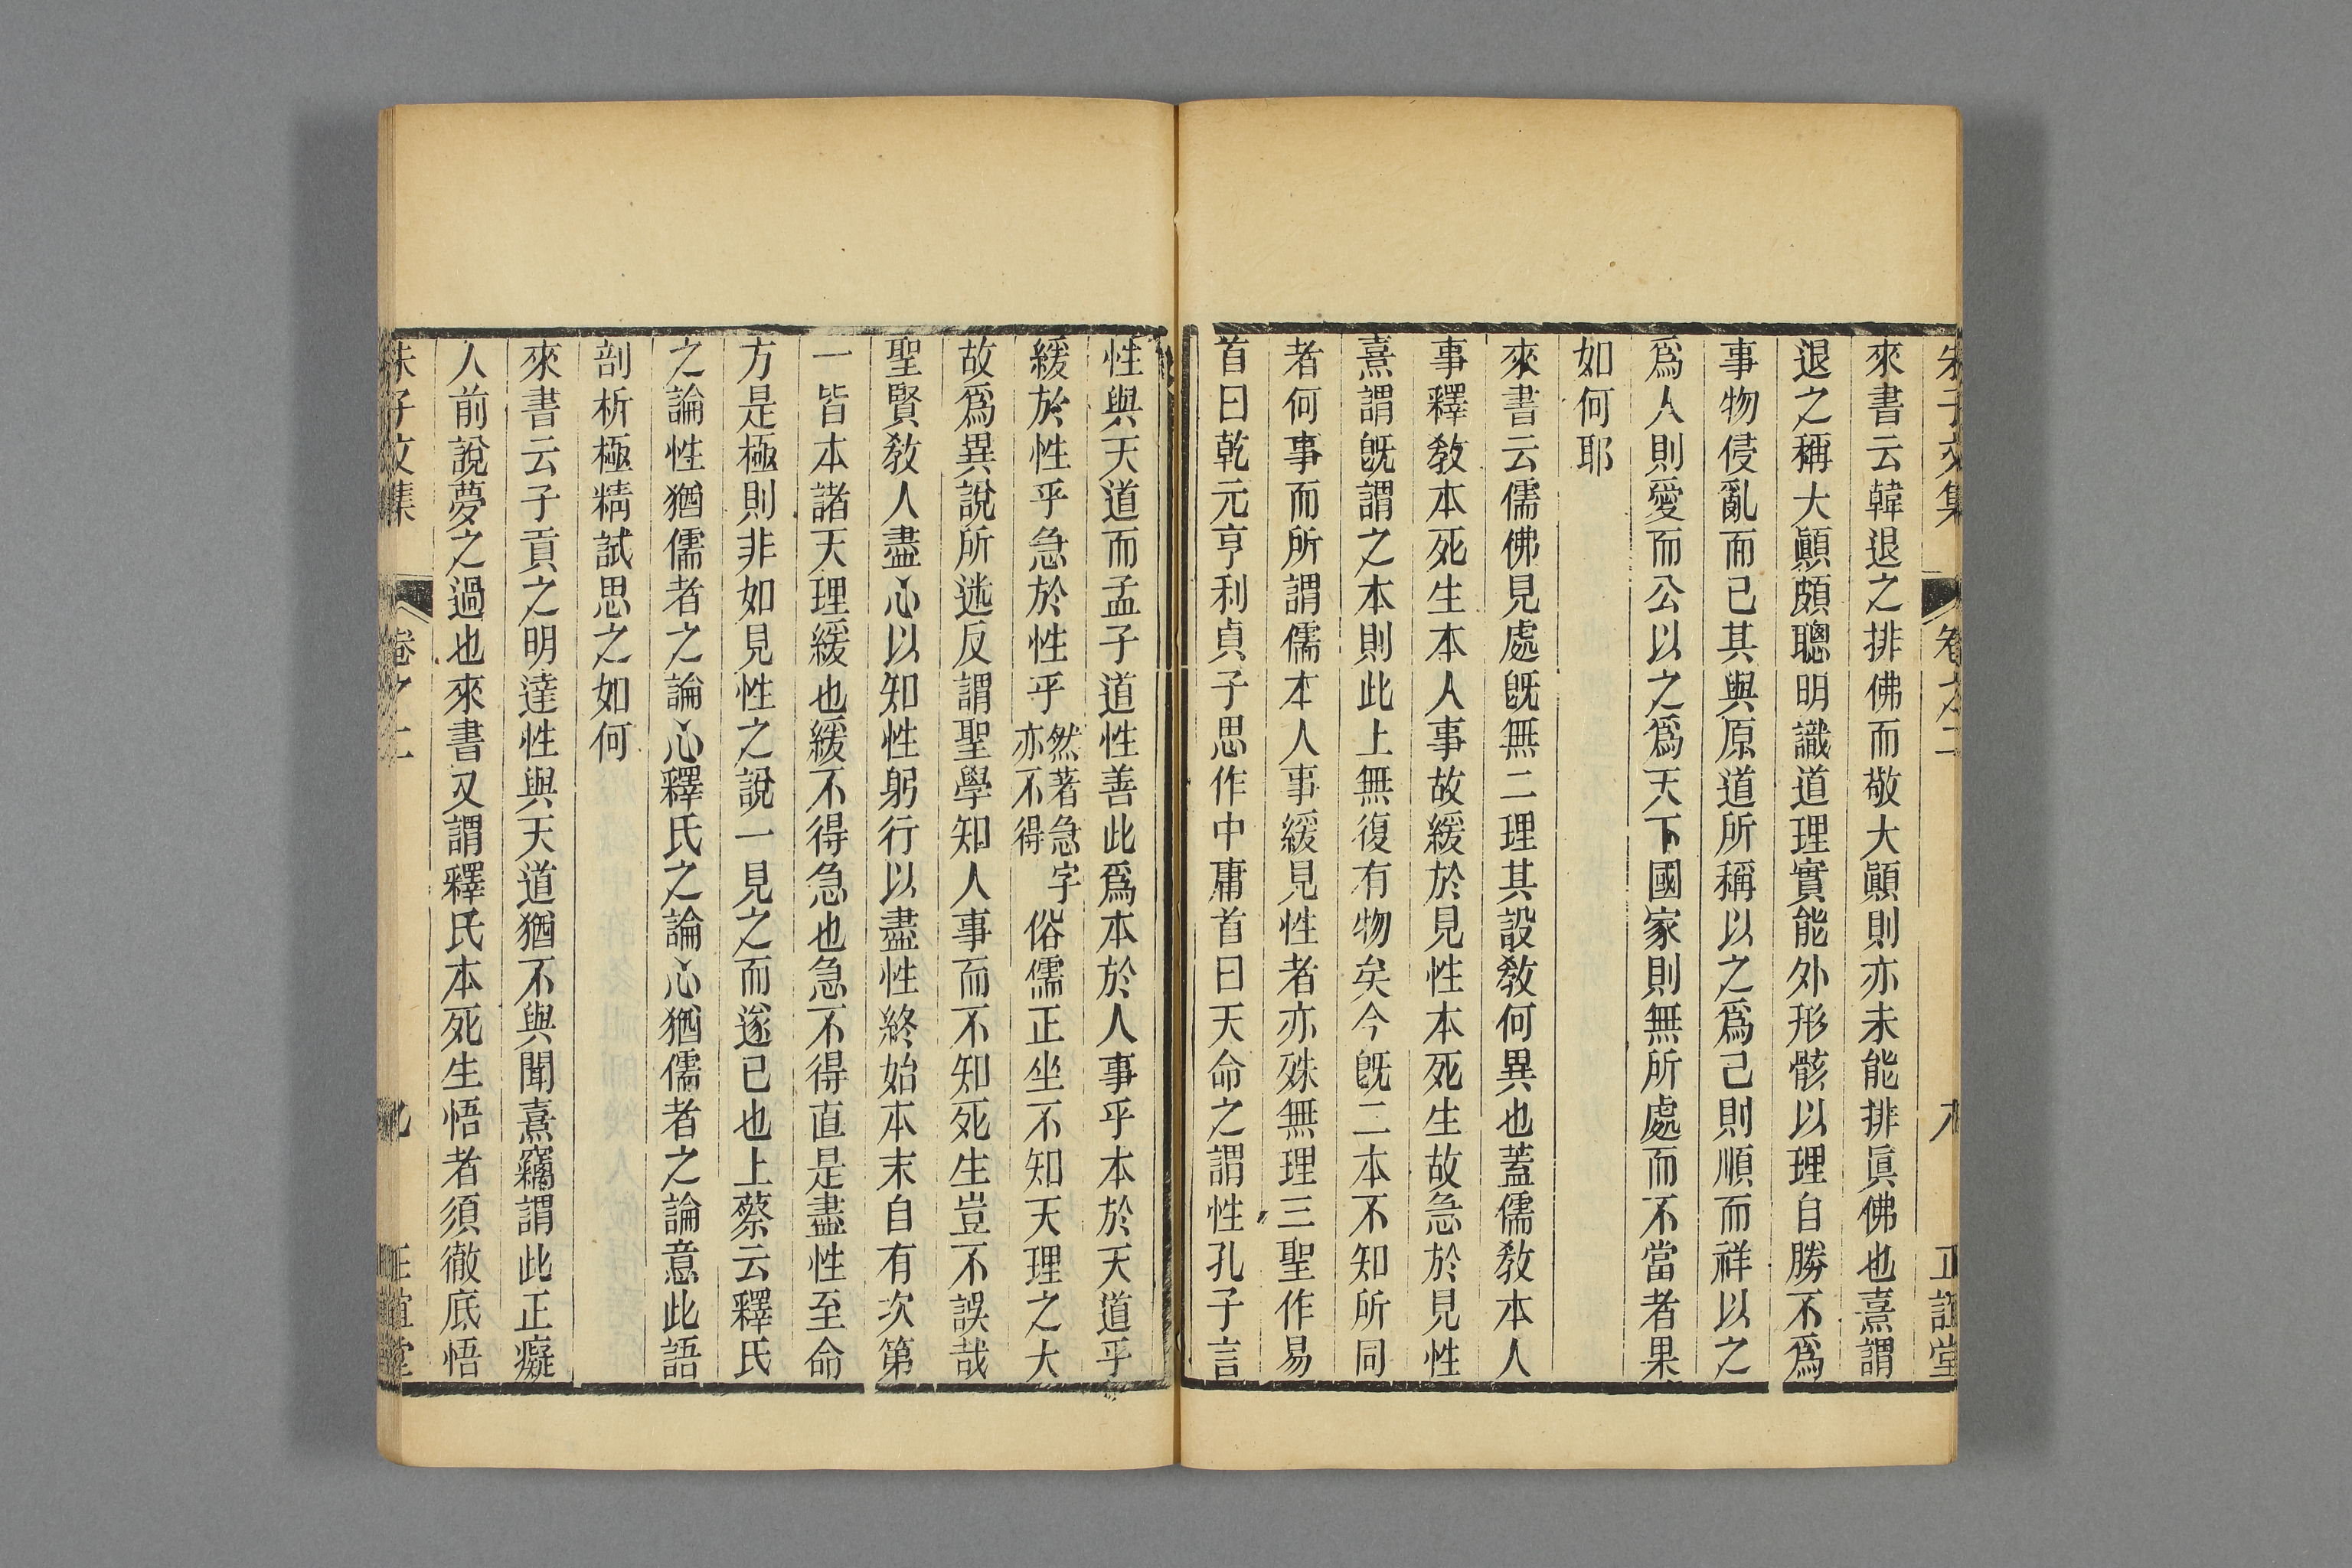 朱子文集 卷之二 八 正誼堂
來書云韓退之排佛而敬大顚則亦未能排眞佛也熹謂
退之稱大顚頗聰明識道理實能外形骸以理自勝不爲
事物侵亂而已其與原道所稱以之爲己則順而祥以之
爲人則愛而公以之爲天下國家則無所處而不當者果
如何耶
來書云儒佛見處旣無二理其設敎何異也蓋儒敎本人
事釋敎本死生本人事故緩於見性本死生故急於見性
熹謂旣謂之本則此上無復有物矣今旣二本不知所同
者何事而所謂儒本人事緩見性者亦殊無理三聖作易
首曰乾元亨利貞子思作中庸首曰天命之謂性孔子言
性與天道而孟子道性善此爲本於人事乎本於天道乎
緩於性乎急於性乎然著急字亦不得俗儒正坐不知天理之大
故爲異說所迷反謂聖學知人事而不知死生豈不誤哉
聖賢敎人盡心以知性躬行以盡性終始本末自有次第
一皆本諸天理緩也緩不得急也急不得直是盡性至命
方是極則非如見性之說一見之而遂已也上蔡云釋氏
之論性猶儒者之論心釋氏之論心猶儒者之論意此語
剖析極精試思之如何
來書云子貢之明達性與天道猶不與聞熹竊謂此正癡
人前說夢之過也來書又謂釋氏本死生悟者須徹底悟
朱子文集 卷之二 九 正誼堂